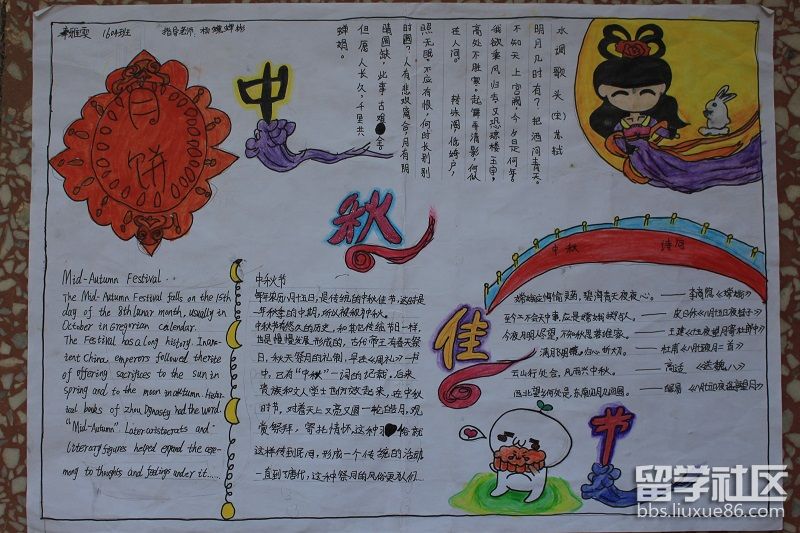 1604班
指导老师
月饼
中
秋
佳
节
水调歌头 苏轼
明月几时有？把酒问青天。
不知天上宫阙,今夕是何年。
我欲乘风归去,又恐琼楼玉宇,
高处不胜寒。起舞弄清影,何似
在人间。 转朱阁,低绮户,
照无眠。不应有恨,何时长别
时圆？人有悲欢离合,月有阴
晴圆缺,此事古难
但愿人长久,千里共
婵娟。
Mid-Autumn Festival...
The Mid-Autumn Festival falls on the 15th
day of the 8th lunar month, usually in
October in Gregorian calendar.
The Festival has a long history. In an
tent China, emperors followed the rite
of offering sacrifices to the sun in
spring and to the moon in autumn. Histor
ical books of zhou Dynasty had the word
"Mid-Autumn". Later aristocrats and
literary figures helped expand the cere
mony to
thoughts and feelings under it.....
中秋节
八月十五日,是传统的中秋佳节,这时是
一年秋季的中期,所以被称为中秋。
中秋节有悠久的历史,和其它传统节日一样,
也是慢慢发展形成的,古代帝王有春天祭
日,秋天祭月的礼制,早在《周礼》一书
中,已有“中秋”一词的记载,后来
贵族和文人学士也仿效起来,在中秋
时节,对着天上又亮又圆一轮皓月,观
赏祭拜,寄托情怀,这种 俗就
这样传到民间,形成一个传统的活动
一直到了唐代,这种祭月的风俗更
中秋 诗句
嫦娥应悔偷灵药,碧海青天夜夜心。——李商隐《嫦娥》
至今不会天中事,应是嫦娥掷与人。——皮日休《八月十五夜桂子》
今夜月明人尽望,不知秋思落谁家。——王建《十五夜望月寄杜郎中》
满月飞明镜,归心折大刀。——杜甫《八月十五夜月二首》
云山行处合,风雨兴中秋。——高适
西北望乡何处是,东南见月几回圆。——《八月十五夜湓亭望月》
留学社区
bbs.liuxue86.com